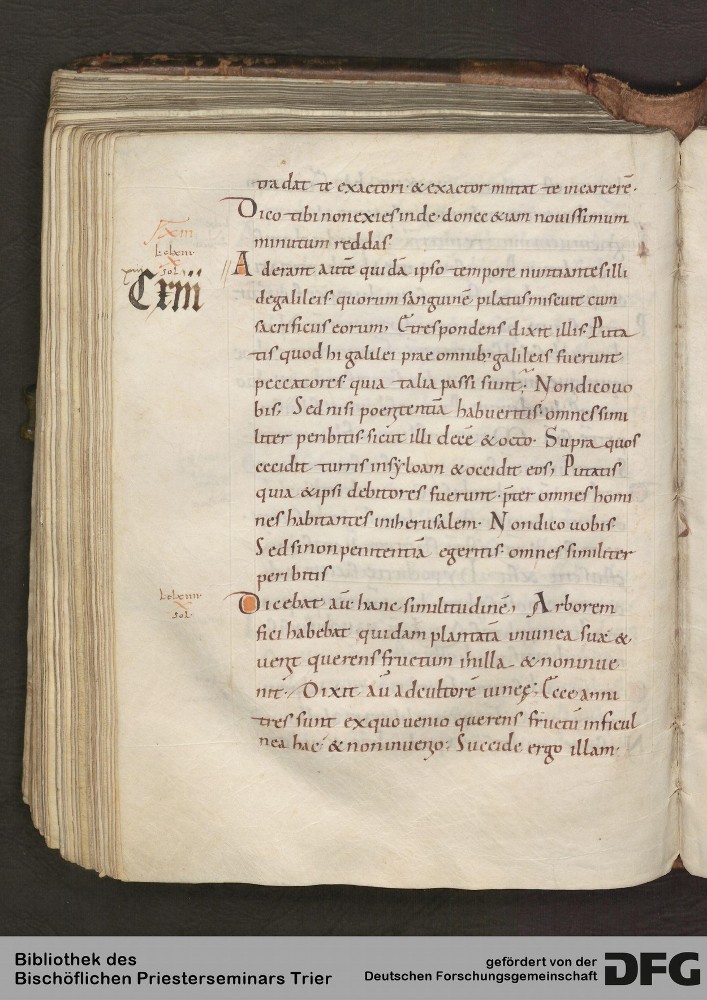 tradat te exactori· & exactor mittat te incarcerē·
Dico tibi non exies inde· donec & iam nouissimum
minutum reddas·
Aderant autē quidā ipso tempore nuntiantes illi
de galileis· quorum sanguinē pilatus miscuit cum
sacrificiis eorum; Et respondens dixit illis· Puta
tis quod hi galilei prae omnib; galileis fuerunt
peccatores· quia talia passi sunt; Non dico uo
bis· Sed nisi poenitentiā habueritis· omnes simi
liter peribitis· sicut illi decē & octo· Supra quos
cecidit turris in syloam & occidit eos; Putatis
quia & ipsi debitores fuerunt· p̄ter omnes homi
nes habitantes in iherusalem· Non dico uobis·
Sed si non penitentiā egeritis· omnes similiter
peribitis
Dicebat aū hanc similitudinē; Arborem
fici habebat quidam plantatā in uinea sua &
uenit querens fructum in illa & non inue
nit· Dixit aū ad cultorē uineę; Ecce anni
tres sunt ex quo uenio querens fructū in ficul
nea hac· & non inuenio; Succide ergo illam·
Cxiii
sol·
sol·
Bibliothek des
Bischöflichen Priesterseminars Trier
gefördert von der
Deutschen Forschungsgemeinschaft
DFG